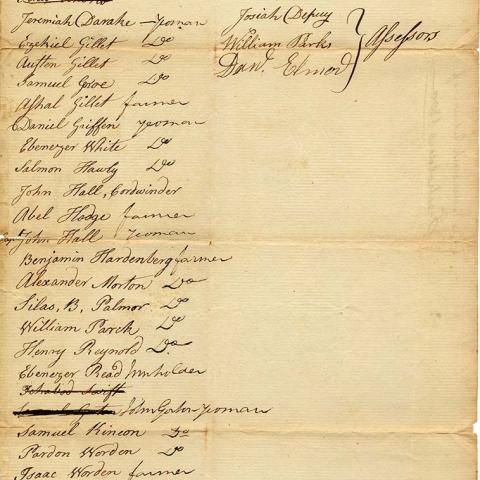 Jeremiah Darake — yeoman
Ezekiel Gillet Do
Austen Gillet Do
Samuel Do
Ashal Gillet farmer
Daniel Griffen yeoman
Ebenezer White Do
Salmon Hawly Do
John Hall, Cordwinder
Abel Hodge farmer
John Hall yeoman
Benjamin Hardenberg farmer
Alexander Morton Do
Silas, B, Palmor Do
William Parck Do
Henry Reynold Do
Ebenezer Read Innholder
Swift
John Gorton yeoman
Samuel Kincon Do
Pardon Worden Do
Isaac Worden farmer
Josiah Depuy
William Parks
Danl. Elmord
Assessors